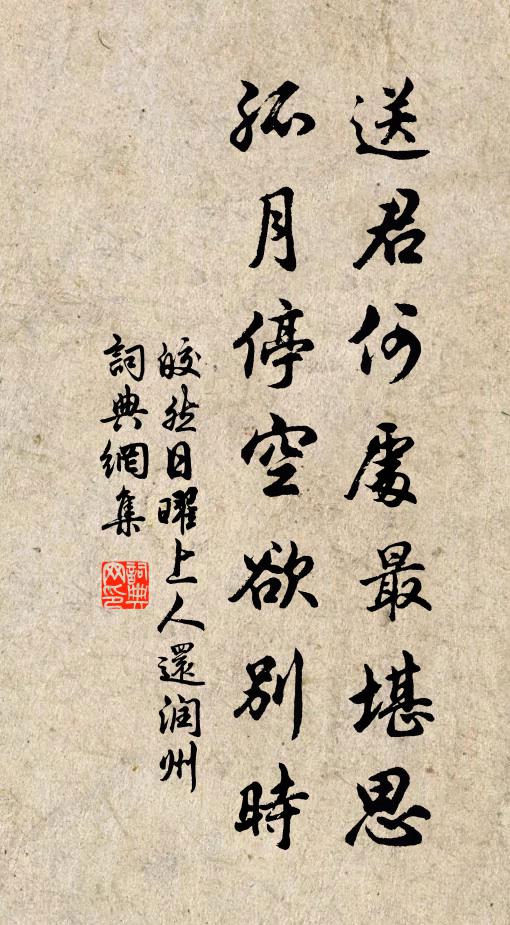 送君何處最堪思
孤月停空欲別時
皎然日曜上人還润州
詞典網集
詞典网印